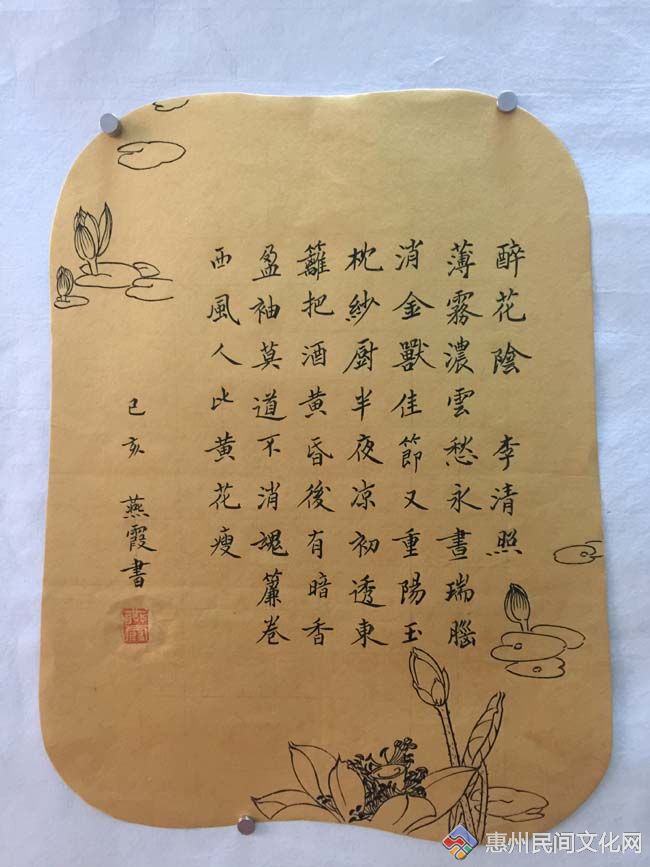 醉花陰 李清照
薄霧濃雲愁永晝瑞腦
消金獸佳節又重陽玉
枕紗厨半夜凉初透東
籬把酒黄昏後有暗香
盈袖莫道不消魂簾卷
西風人比黄花瘦
己亥 燕霞書
惠州民间文化网